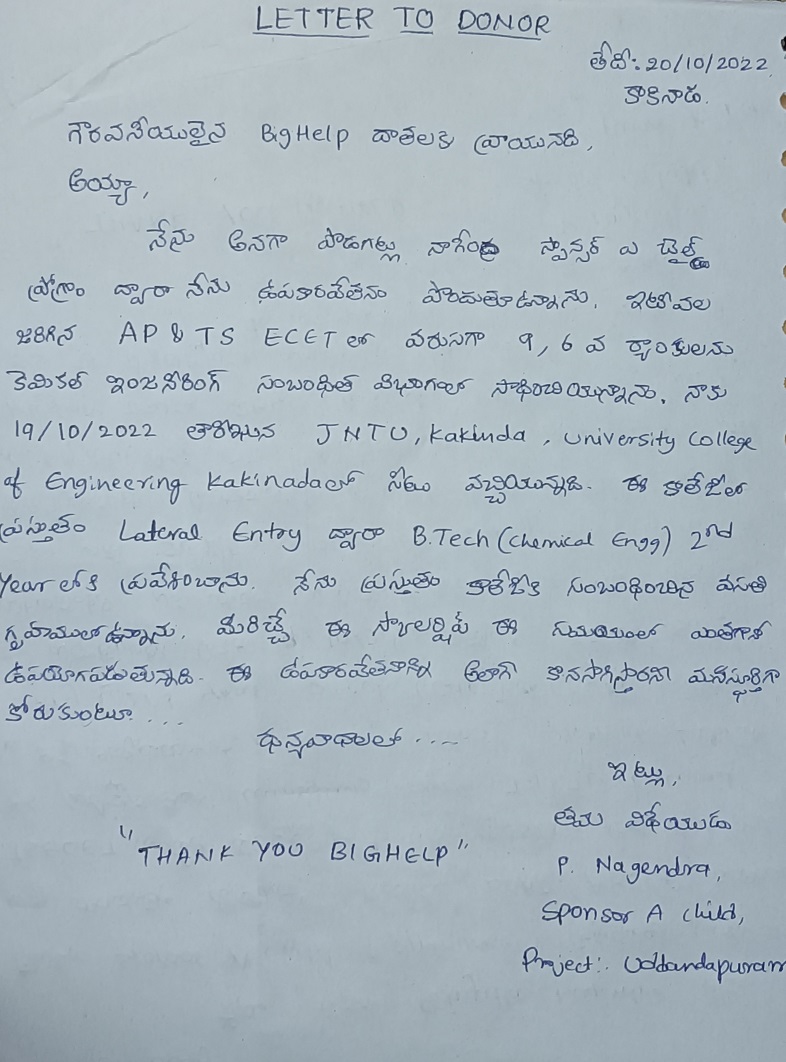 LETTER TO DONOR
తేది: 20/10/2022
కాకినాడ.
గౌరవనీయులైన BigHelp దాతలకు వ్రాయునది,
అయ్యా,
నేను అనగా పొడగట్లు నాగేంద్ర స్పాన్సర్ ఎ చైల్డ్
ప్రోగ్రాం ద్వారా నేను ఉపకారవేతనం పొందుతూఉన్నాను. ఇటీవల
జరిగిన AP & TS ECET లో వరుసగా 9, 6 వ ర్యాంకులను
కెమికల్ ఇంజనీరింగ్ సంబంధిత విభాగంలో సాధించియున్నాను. నాకు
19/10/2022 తారీఖున JNTU, Kakinda, University College
of Engineering Kakinadaలో సీటు వచ్చియున్నది. ఈ కాలేజీలో
ప్రస్తుతం Lateral Entry ద్వారా B.Tech (Chemical Engg) 2nd
Year లోకి ప్రవేశించాను. నేను ప్రస్తుతం కాలేజీకి సంబంధించిన వసతి
గృహములోఉన్నాను. మీరిచ్చే ఈ స్కాలర్షిప్ ఈ సమయంలో ఎంతగానో
ఉపయోగపడుతున్నది. ఈ ఉపకారవేతనాన్ని అలాగే కొనసాగిస్తారని మనస్ఫూర్తిగా
కోరుకుంటూ. ...
ధన్యవాదాలలో ....
ఇట్లు,
తమ విధేయుడు
"THANK YOU BIGHELP"
P. Nagendra,
Sponsor A child,
Project:. Uddandapuram